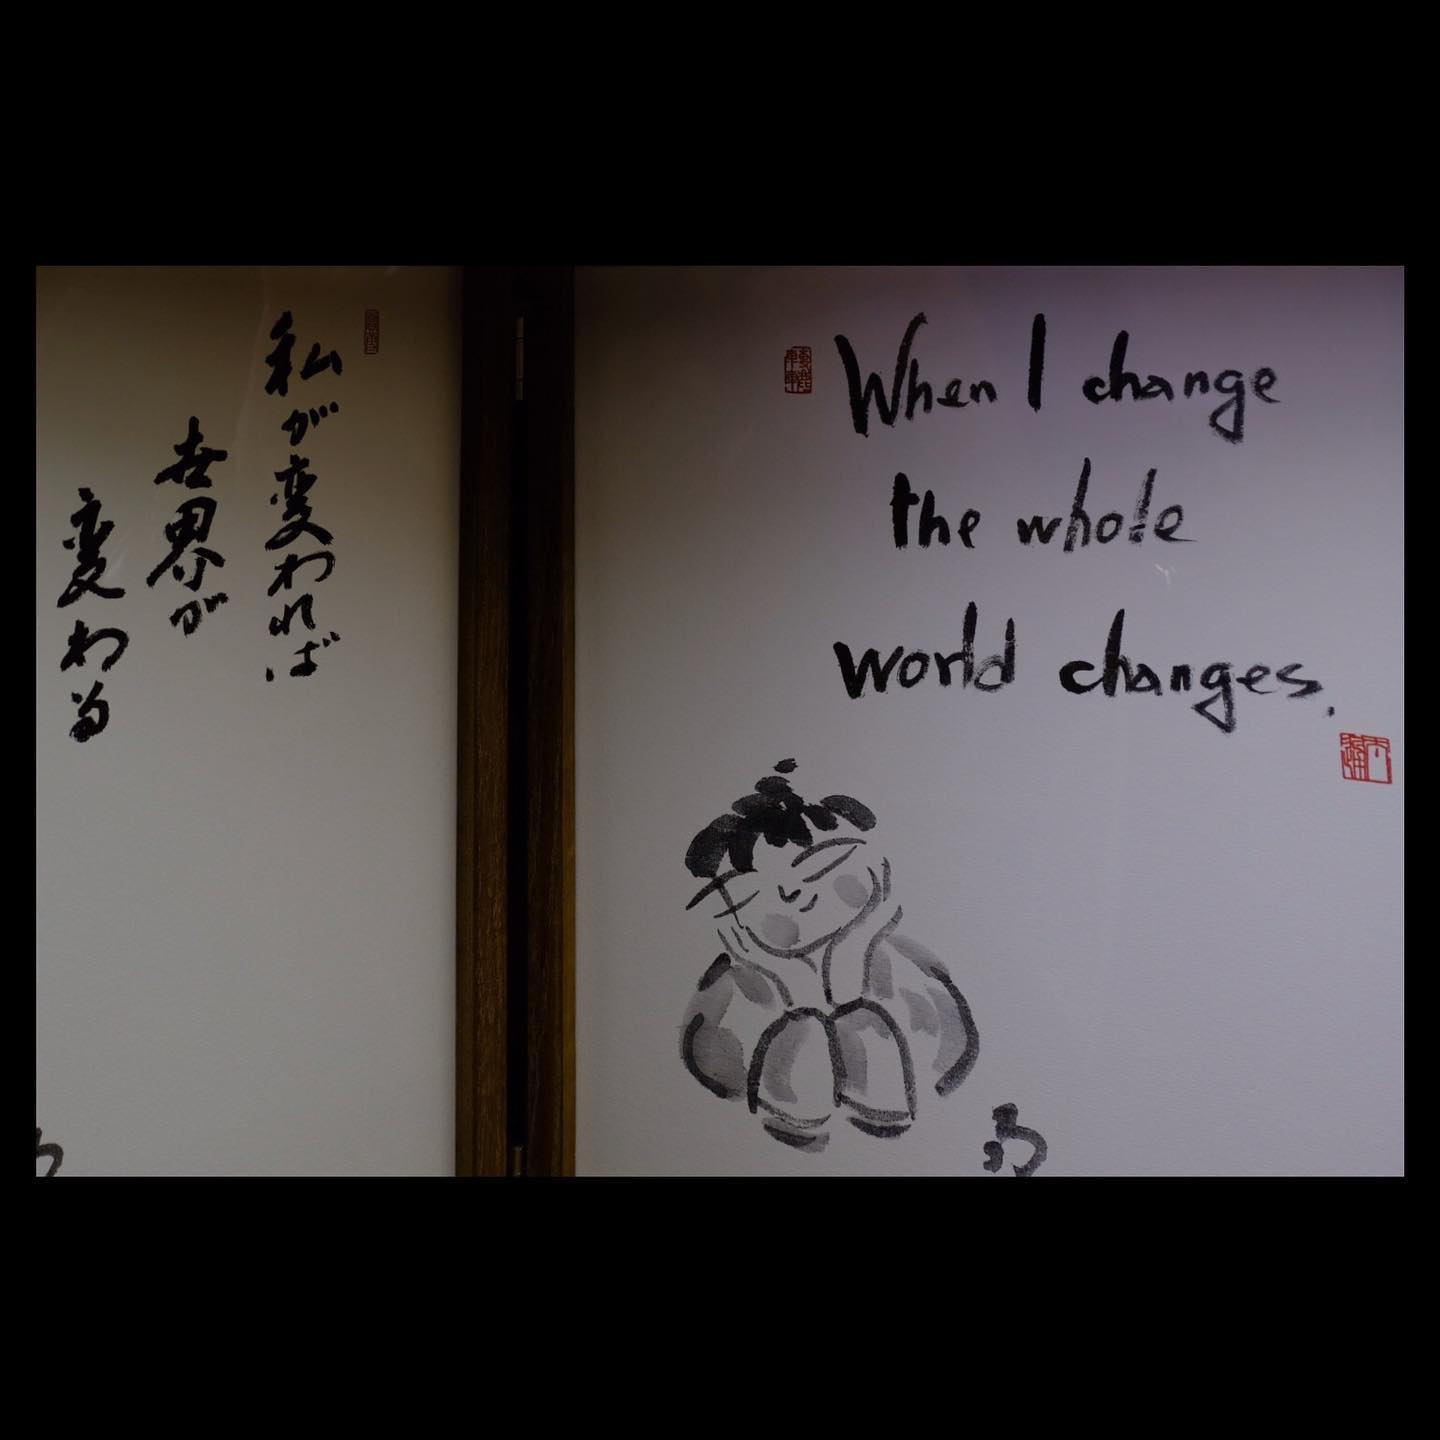 私が変われば
世界が
変わる
When I change
the whole
world changes.